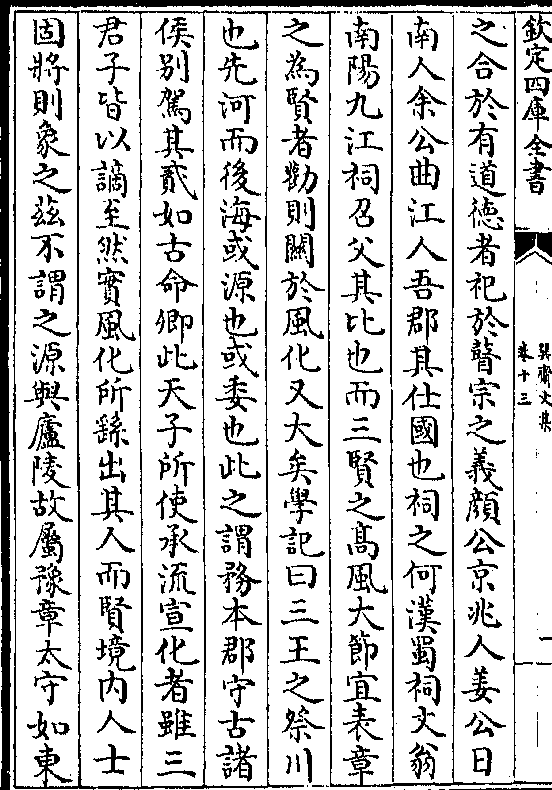 欽定四庫全書
巽齋文集
卷十三
一
之合於有道德者祀於瞽宗之義顔公京兆人姜公日
南人余公曲江人吾郡其仕國也祠之何漢蜀祠文翁
南陽九江祠召父其比也而三賢之髙風大節宜表章
之為賢者勸則闗於風化又大矣學記曰三王之祭川
也先河而後海或源也或委也此之謂務本郡守古諸
侯别駕其貳如古命卿此天子所使承流宣化者雖三
君子皆以謫至然實風化所繇出其人而賢境内人士
固將則象之兹不謂之源與廬陵故屬豫章太守如東